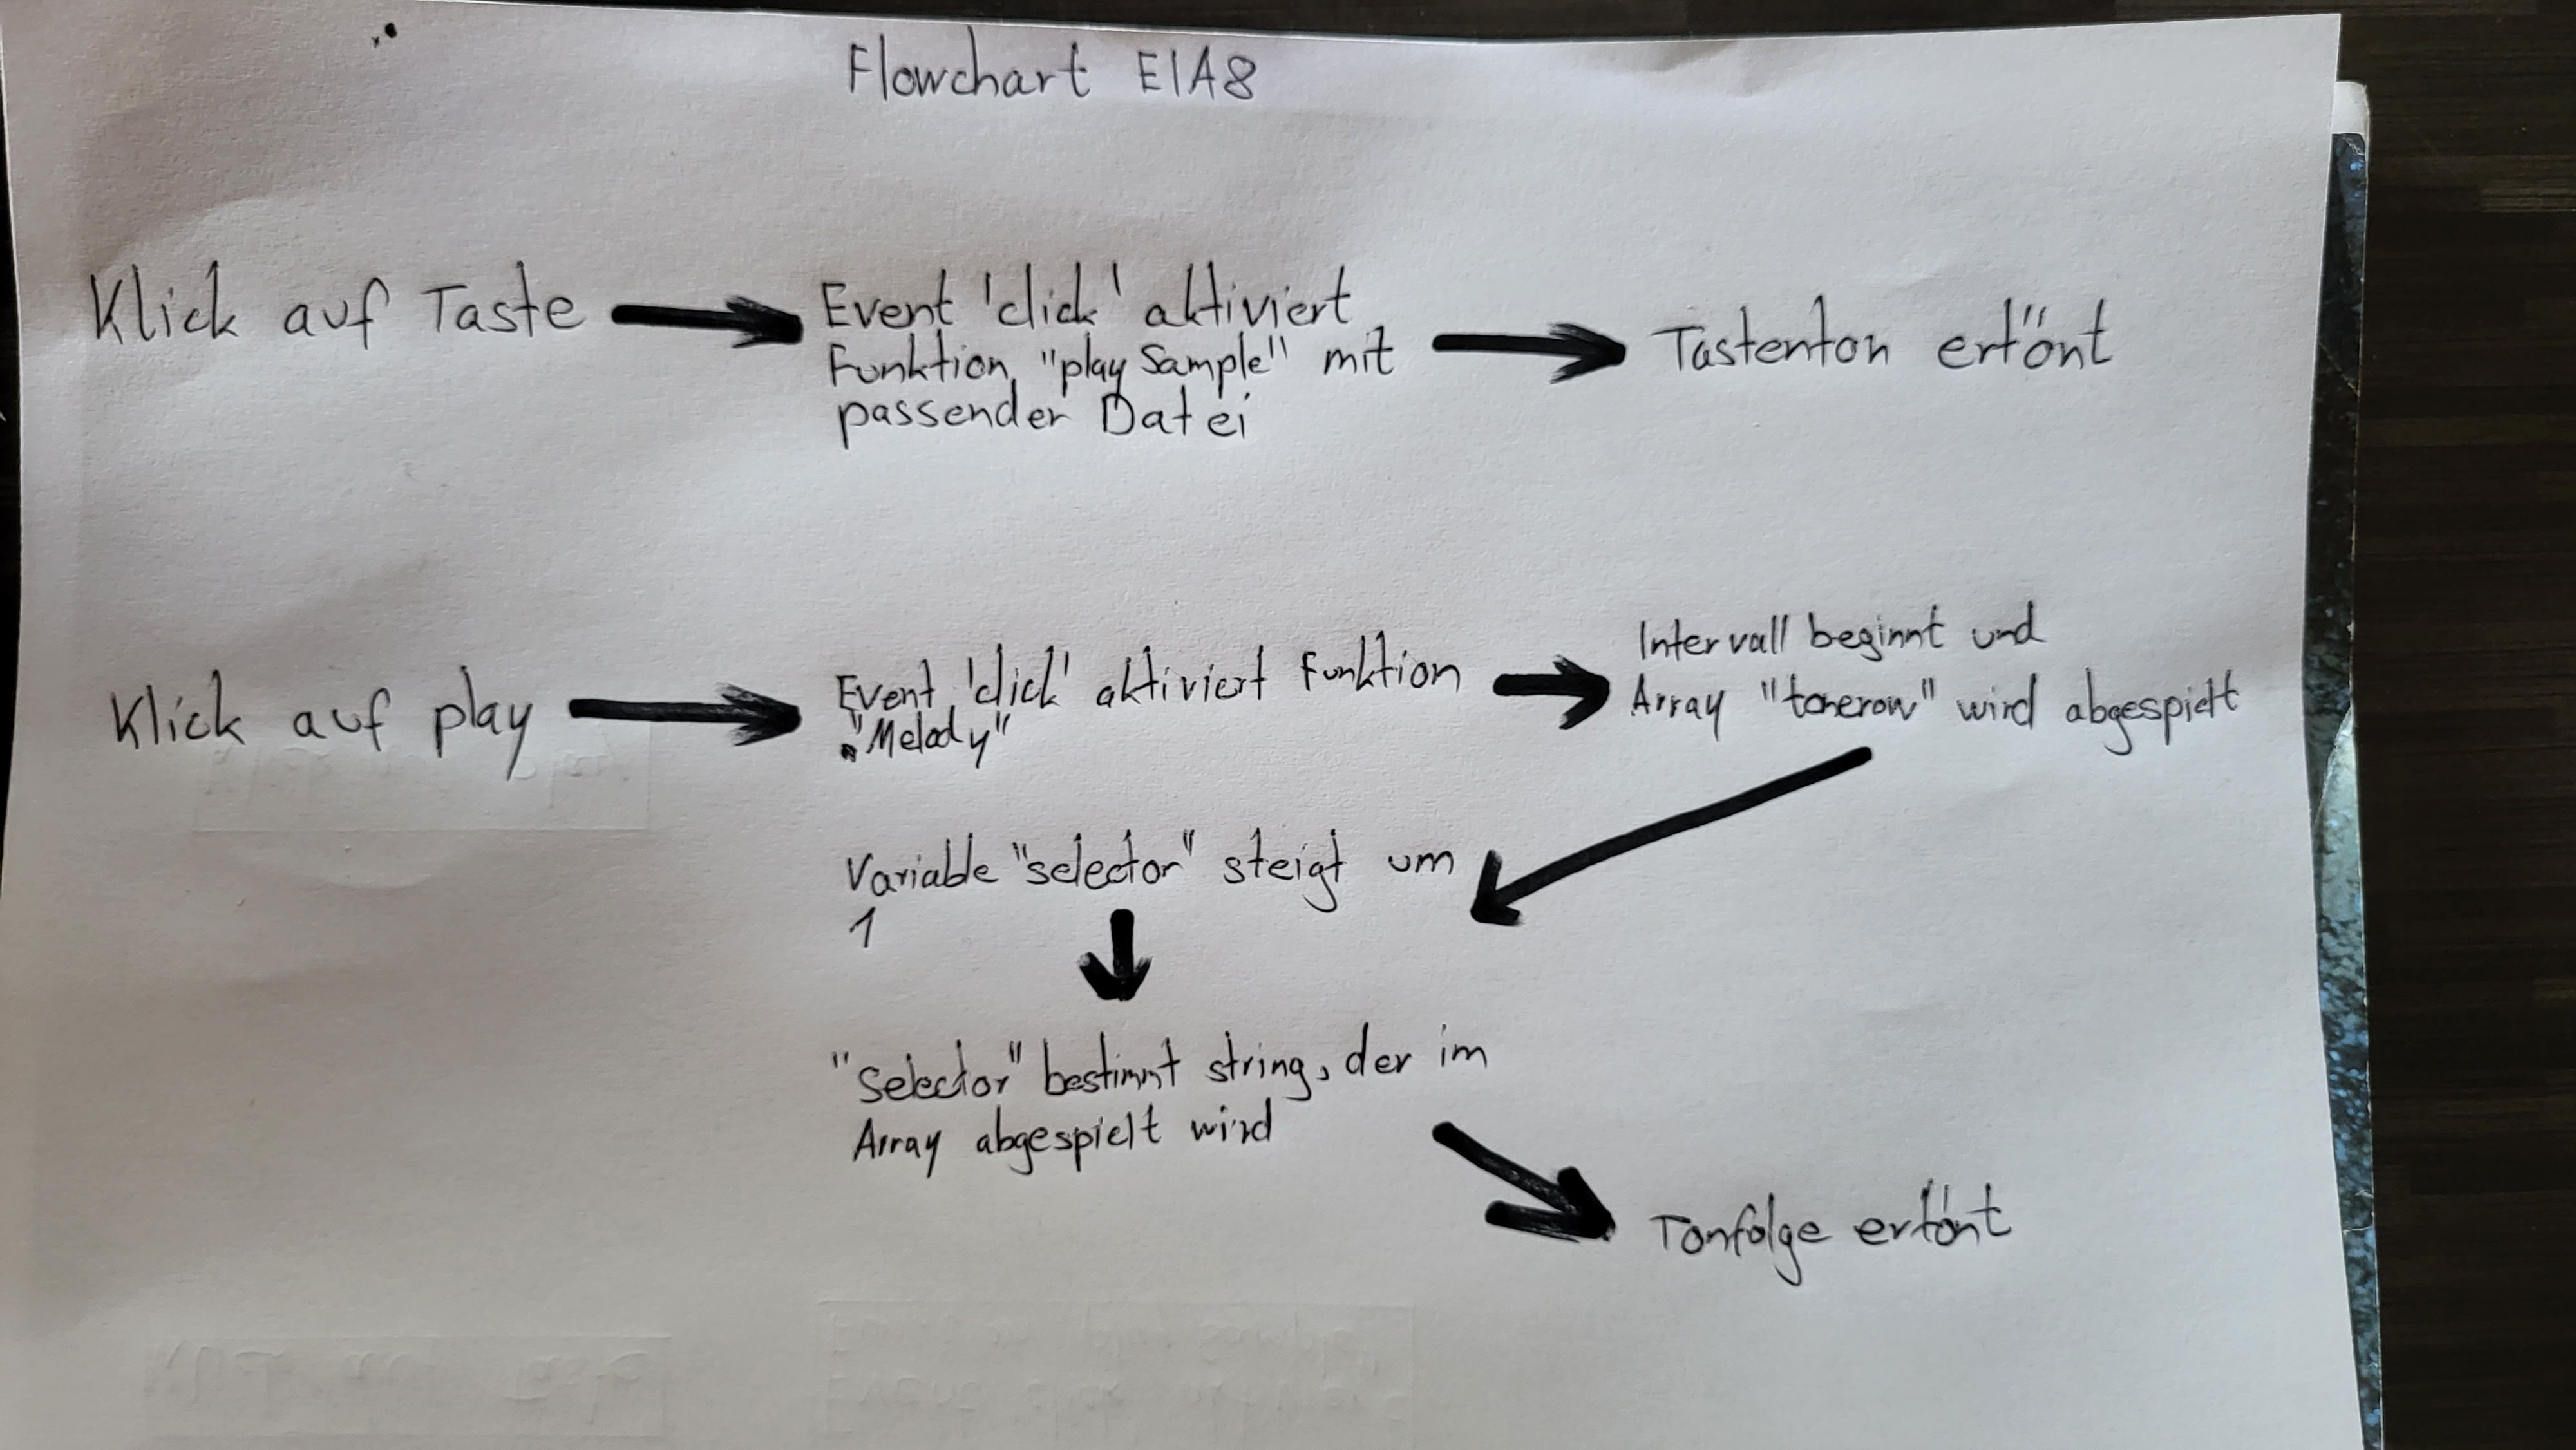 Flowchart EIA8
Klick auf Taste
Event 'click' aktiviert
Funktion "play Sample" mit
passender Datei
Tastenton ertönt
Klick auf play
Event 'click' aktiviert Funktion
"Melody"
Intervall beginnt und
Array "tonerow" wird abgespielt
Variable "selector" steigt um
1
"Selector" bestimmt string, der im
Array abgespielt wird
Tonfolge ertönt